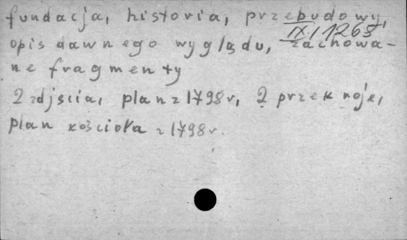 fundacja, historia, przebudowy,
IX/1268
opis dawnego wyglądu, zachowa-
ne fragmenty
2 zdjścia, plan z 1798r, 2 przekroje,
plan kościoła z 1798r.